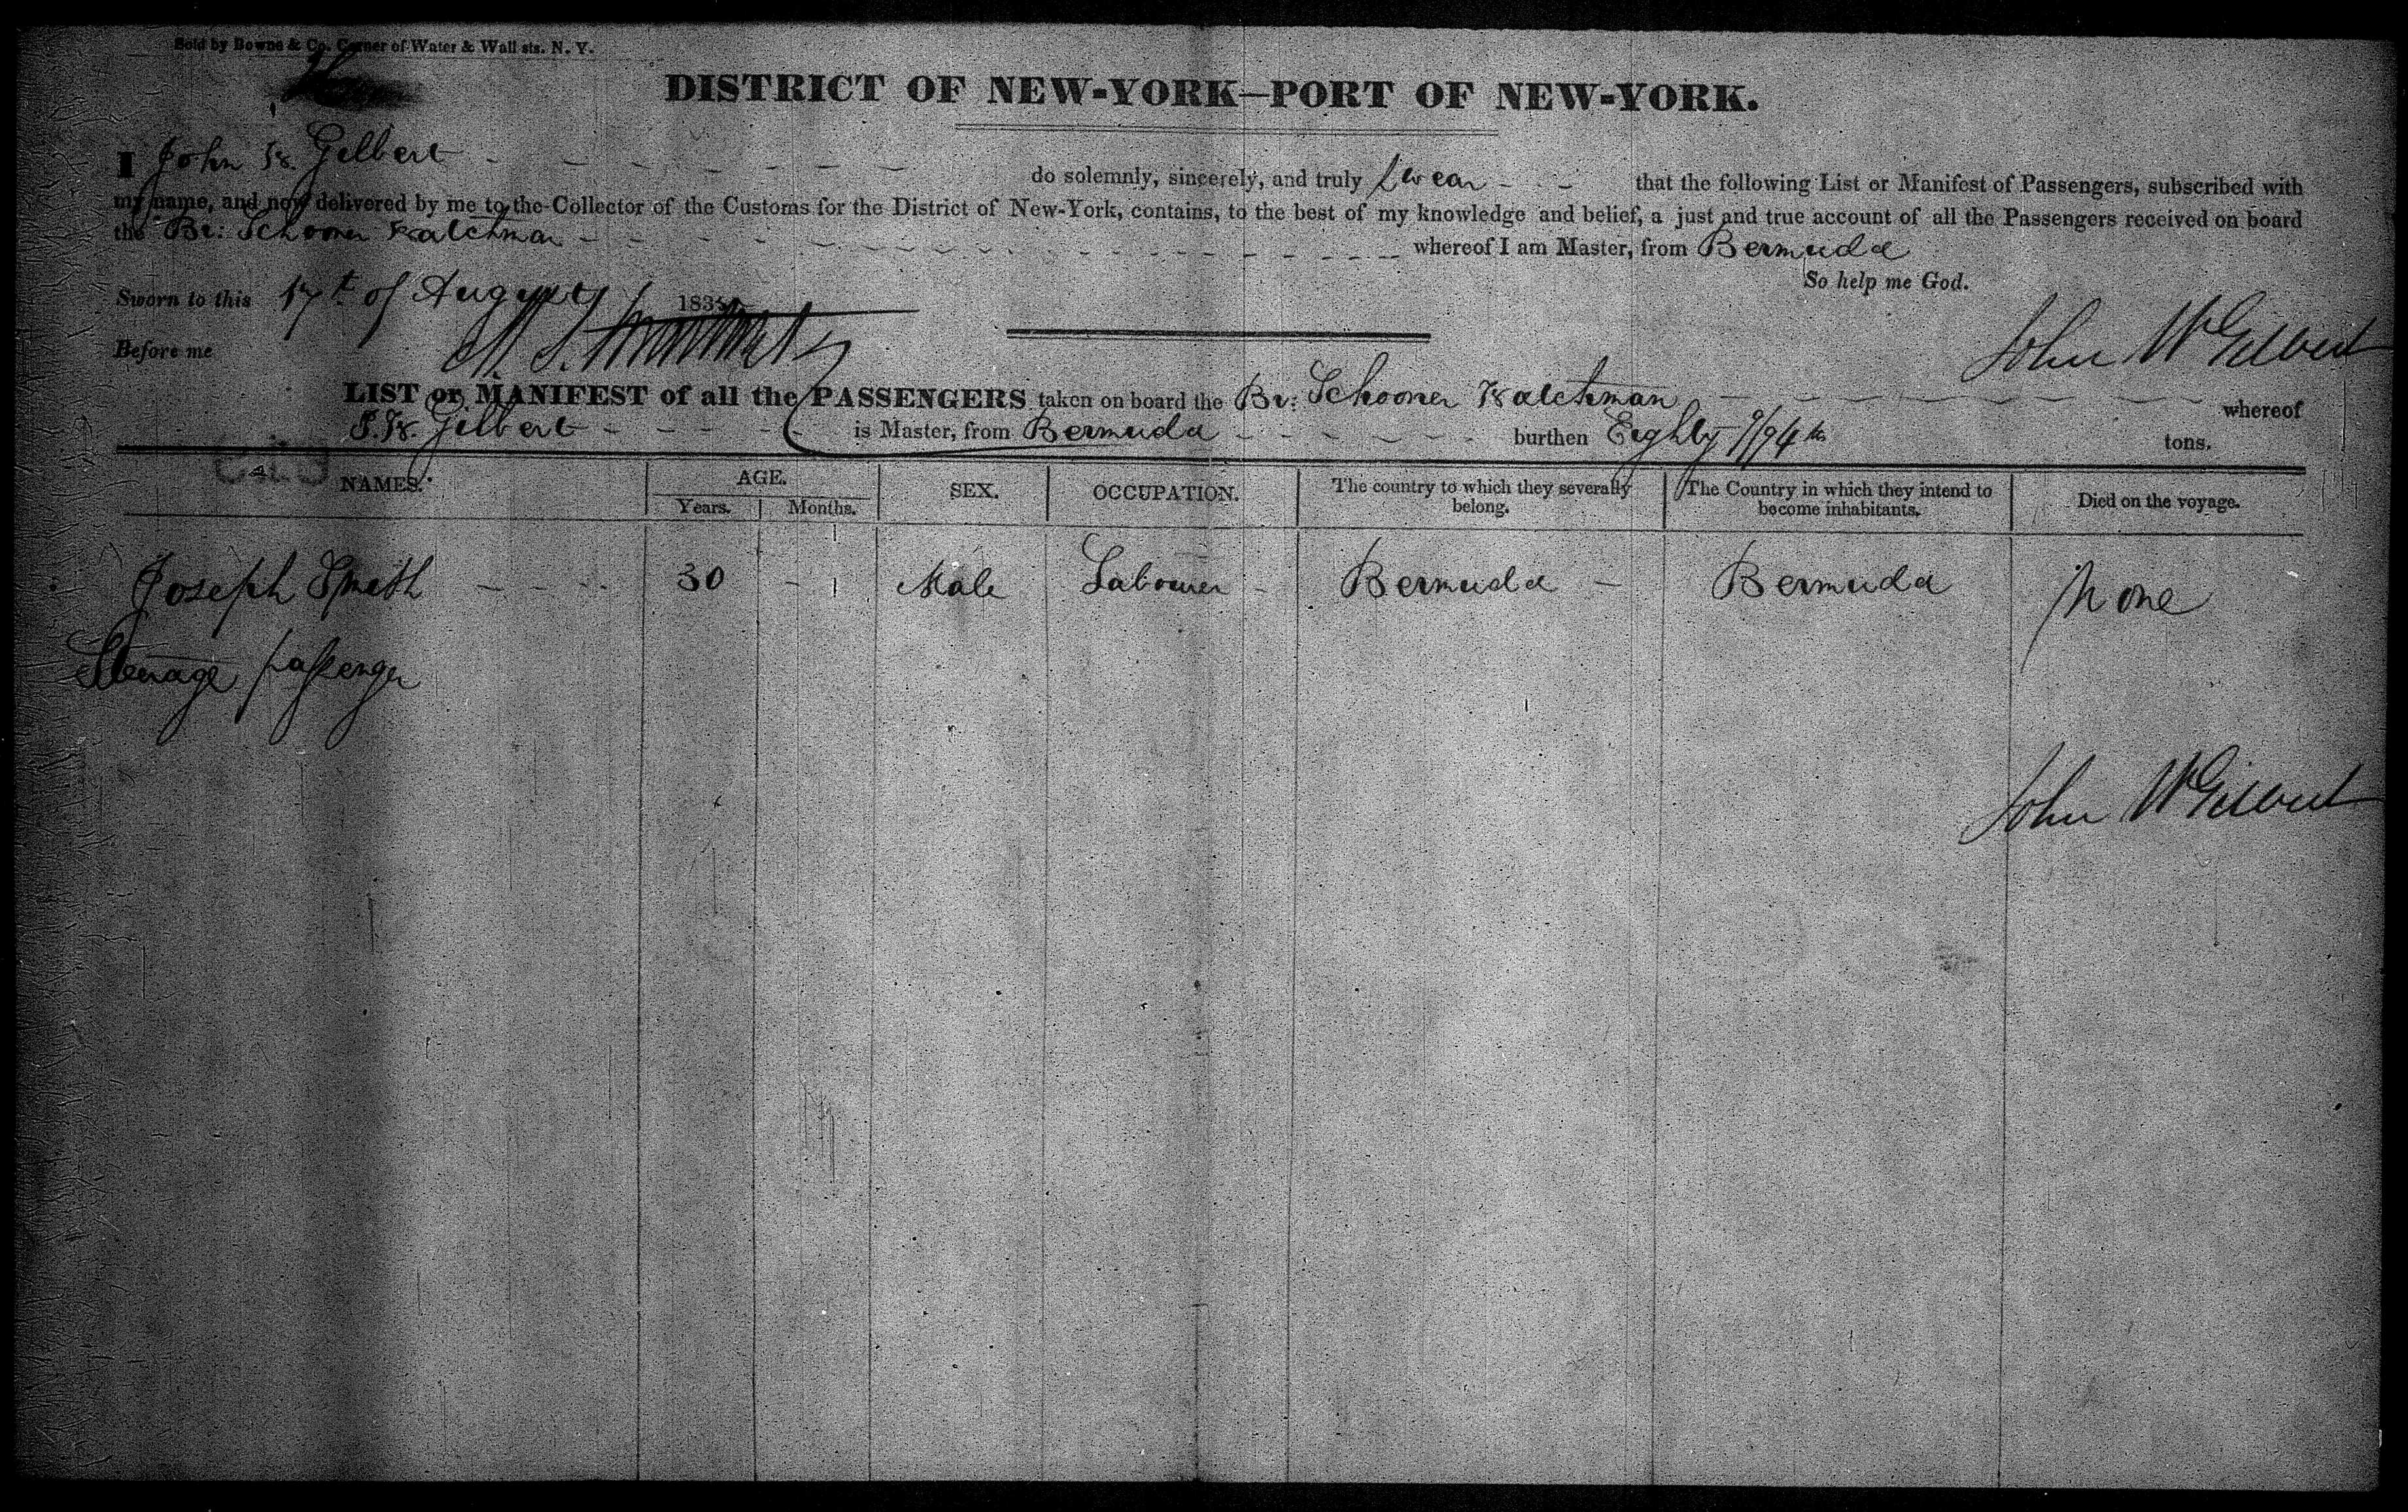 Sold by Bowne & Co. Corner of Water & Wall sts. N. Y.
DISTRICT OF NEW-YORK—PORT OF NEW-YORK.
I John W. Gilbert do solemnly, sincerely, and truly Swear that the following List or Manifest of Passengers, subscribed with
my name, and now delivered by me to the Collector of the Customs for the District of New-York, contains, to the best of my knowledge and belief, a just and true account of all the Passengers received on board
the Br: Schooner whereof I am Master, from Bermuda
So help me God.
Sworn to this 17t of August 183
Before me
John W Gilbert
LIST or MANIFEST of all the PASSENGERS taken on board the Br: Schooner whereof
J. W. Gilbert is Master, from Bermuda burthen Eighty 9/94ths tons.
NAMES. AGE. SEX. OCCUPATION. The country to which they severally belong. The Country in which they intend to become inhabitants. Died on the voyage.
Years. Months.
Joseph Smith 30 Male Labourer Bermuda Bermuda None
Steerage passenger
John W Gilbert